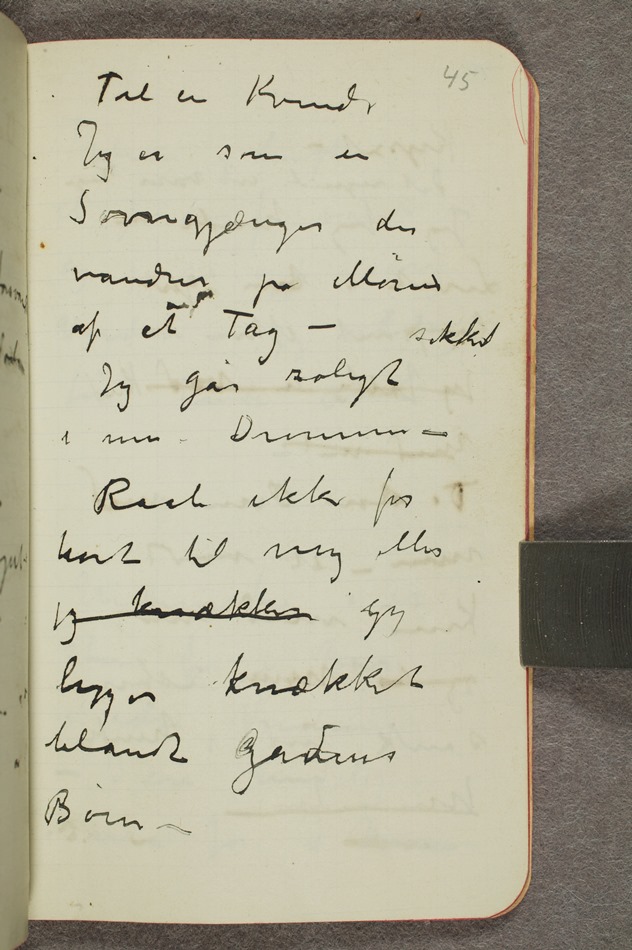 45
Til en Kvinde
Jeg er som en
Søvngjænger der
vandrer på Mönet
af et Tag – sikkert
Jeg går roligt
i min Drömmen –
Raab ikke for
hört til mig ellers
jeg knækker jeg
ligger knækket
blandt Gadens
Börn –